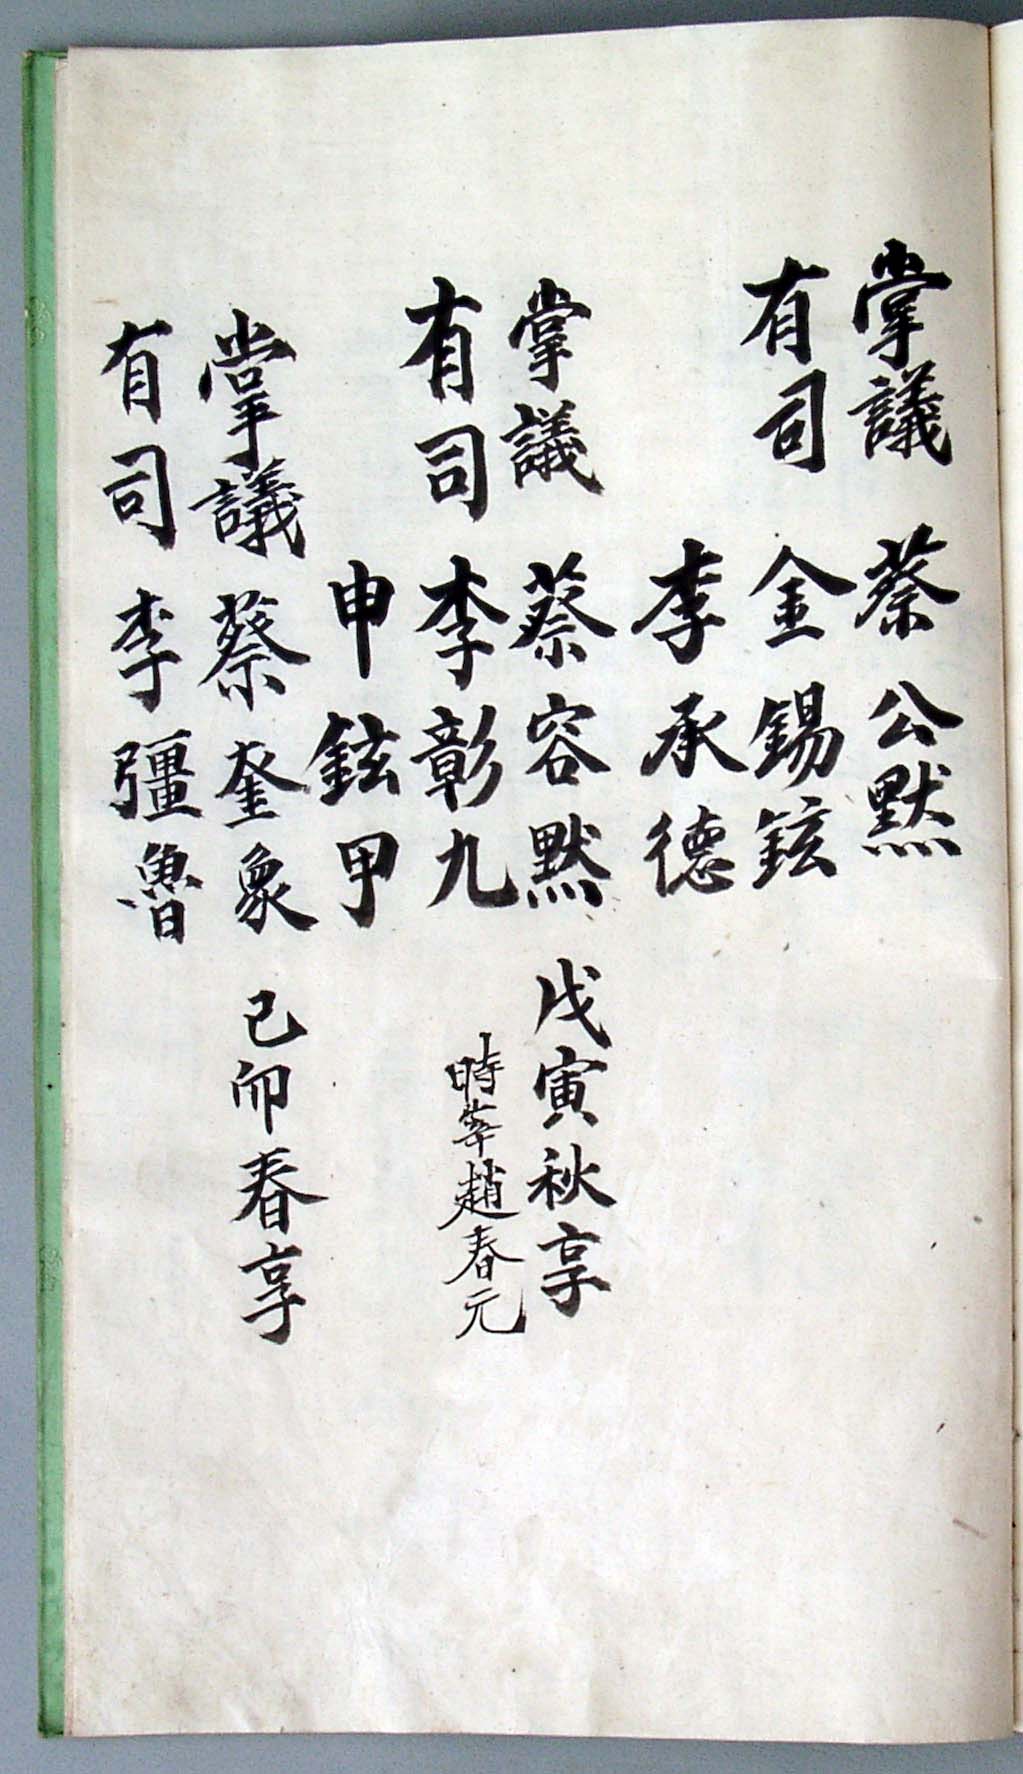 掌議 蔡公默
有司 金錫鉉
李承德
掌議 蔡容默 戊寅秋享
有司 李彰九 時宰趙春元
申鉉甲
掌議 蔡奎象 己卯春享
有司 李彊魯